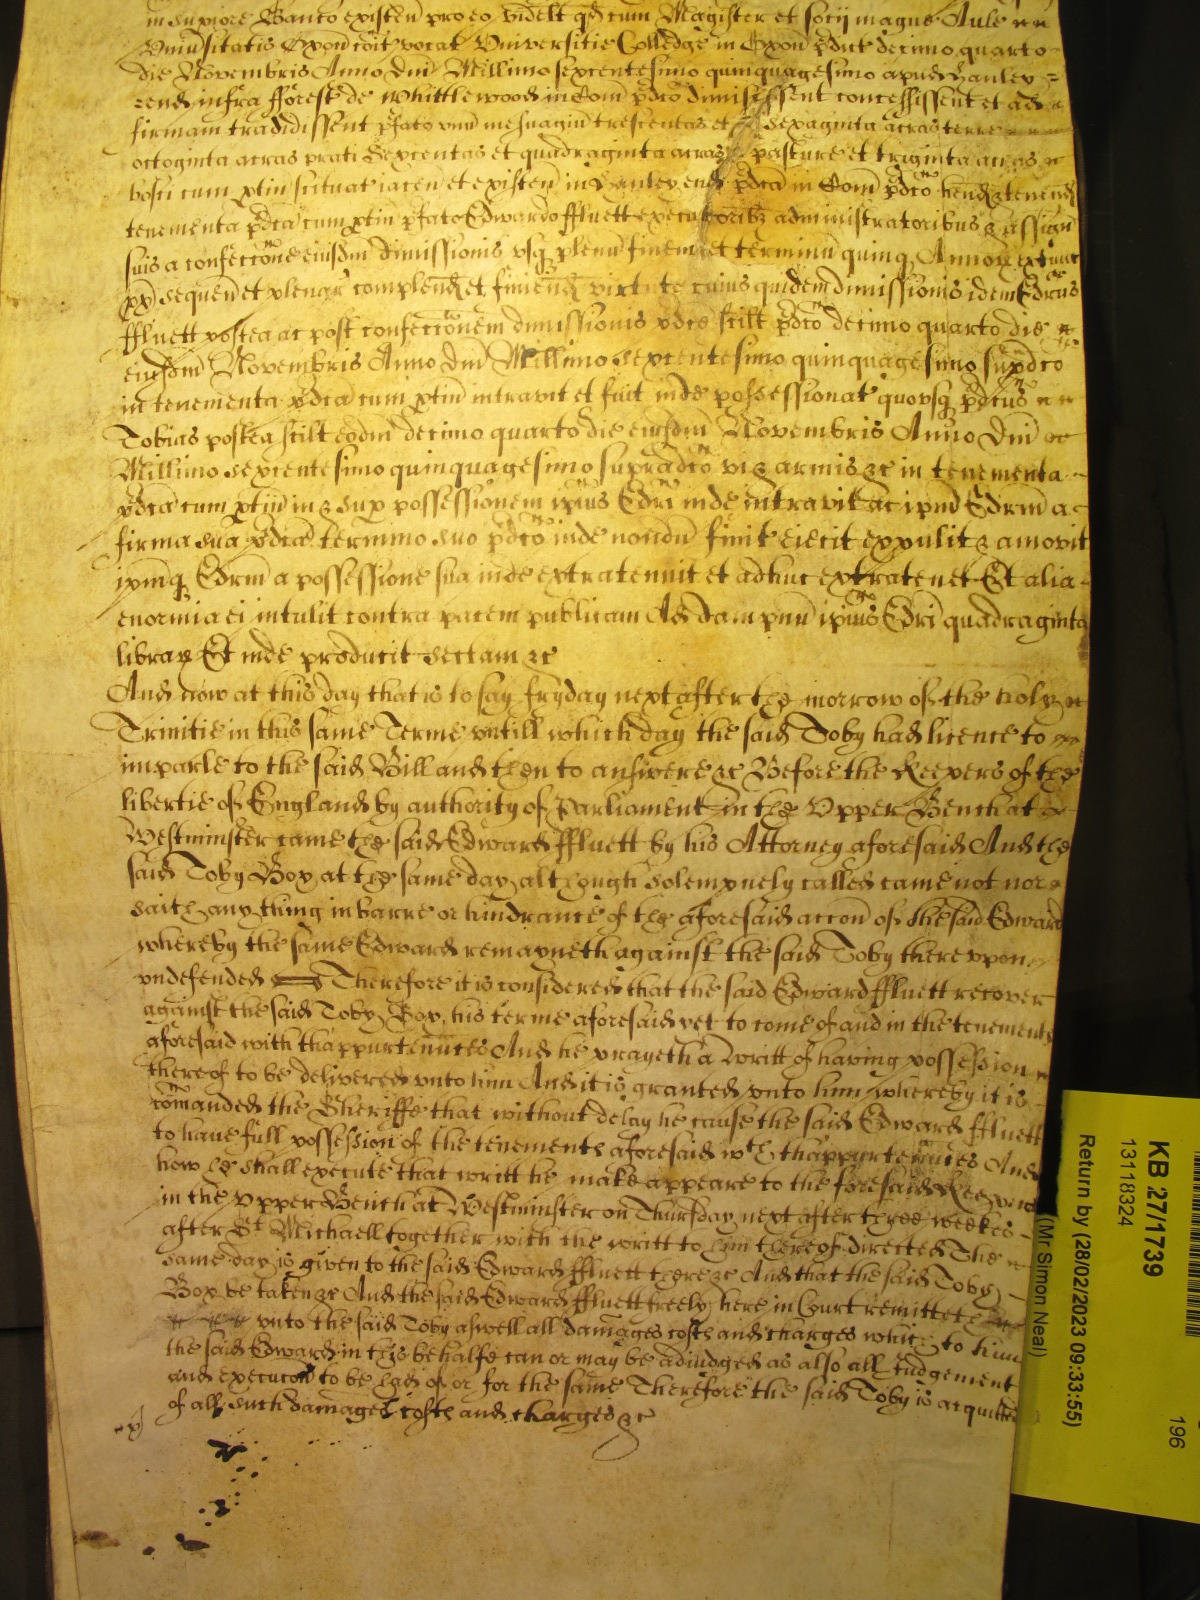 in Supiore Banco existen pro eo videlt qd cum Magister et Socij magne Aule
Univsitatis Oxon coit vocat Universitie Colledge in Oxon pdict decimo quarto
die Novembris Anno Dni Millimo sexcentesimo quinquagesimo apud Hanley
end infra fforest de Whittlewood in Com pdco dimisissent concessissent et ad
firmam tradidissent pfato vnu mesuagiu trescentas et sexaginta acras terre
octoginta acras prati Sexcentas et quadraginta acras pasture et triginta acras
bosci cum ptin scituat iacen et existen in Hanley end pdca in Com pdco hend & tenend
tenementa pdca cum ptin pfato Edwardo ffluett executoribz administratoribus & assign
suis a confeccone eiusdm dimissionis vsq plenu finem et terminu quinq Annoz extunc
px sequen et plenar complend et finiend virtute cuius quidem dimissionis idem Edrus
ffluett postea ac post confecconem dimissionis pdce scilt pdco decimo quarto die
eiusdm Novembris Anno Dni Millimo Sexcentesimo quinquagesimo supdco
in tenementa pdca cum ptin intravit et fuit inde possessionat quousq pdcus
Tobias postea scilt eodm decimo quarto die eiusdm Novembris Anno Dni
Millimo Sexcentesimo quinquagesimo supradco vi & armis &c in tenementa
pdca cum ptin in & sup possessionem ipius Edri inde intravit ac ipm Edrm a
firma sua pdca termino suo pdco inde nondu finit eiecit expulit & amovit
ipmq Edrm a possessione sua inde extratenuit et adhuc extratenet Et alia
enormia ei intulit contra pacem publicam Ad dampnu ipius Edri quadraginta
libraz Et inde producit sectam &c
And now at this day that is to say fryday next after the morrow of the holy
Trinitie in this same Terme vntill which day the said Toby had licence to
imparle to the said Bill and then to answere &c Before the Keepers of the
libertie of England by authority of Parliament in the Vpper Bench at
Westminster came the said Edward ffluett by his Attorney aforesaid And the
said Toby Box at the same day although solempnely called came not nor
saith any thing in barre or hindrance of the aforesaid accon of the said Edward
whereby the same Edward remayneth against the said Toby there vpon
vndefended Therefore it is considered that the said Edward ffluett recover
against the said Toby Box his terme aforesaid yet to come of and in the tenements
aforesaid with thappurtennces And he prayeth a writt of having possession
thereof to be delivered vnto him And it is granted vnto him whereby it is
comanded the Sheriffe that without delay he cause the said Edward ffluett
to have full possession of the tenements aforesaid wth thappurtennces And
how he shall execute that writt he make appeare to the foresaid Keepers
in the Vpper Bench at Westminster on Thursday next after three weekes
after St Michaell together with the writt to him thereof directed The
same day is given to the said Edward ffluett there &c And that the said Toby
Box be taken &c And the said Edward ffluett freely here in Court remitteth
vnto the said Toby aswell all damages costs and charges which to him
the said Edward in this behalfe can or may be adiudged as also all Judgement
and execucon to be had of or for the same Therefore the said Toby is acquitted
of all such damages costs and charges &c
KB 27/1739
13118324
196
Return by (28/02/2023 09:33:55)
(Mr Simon Neal)